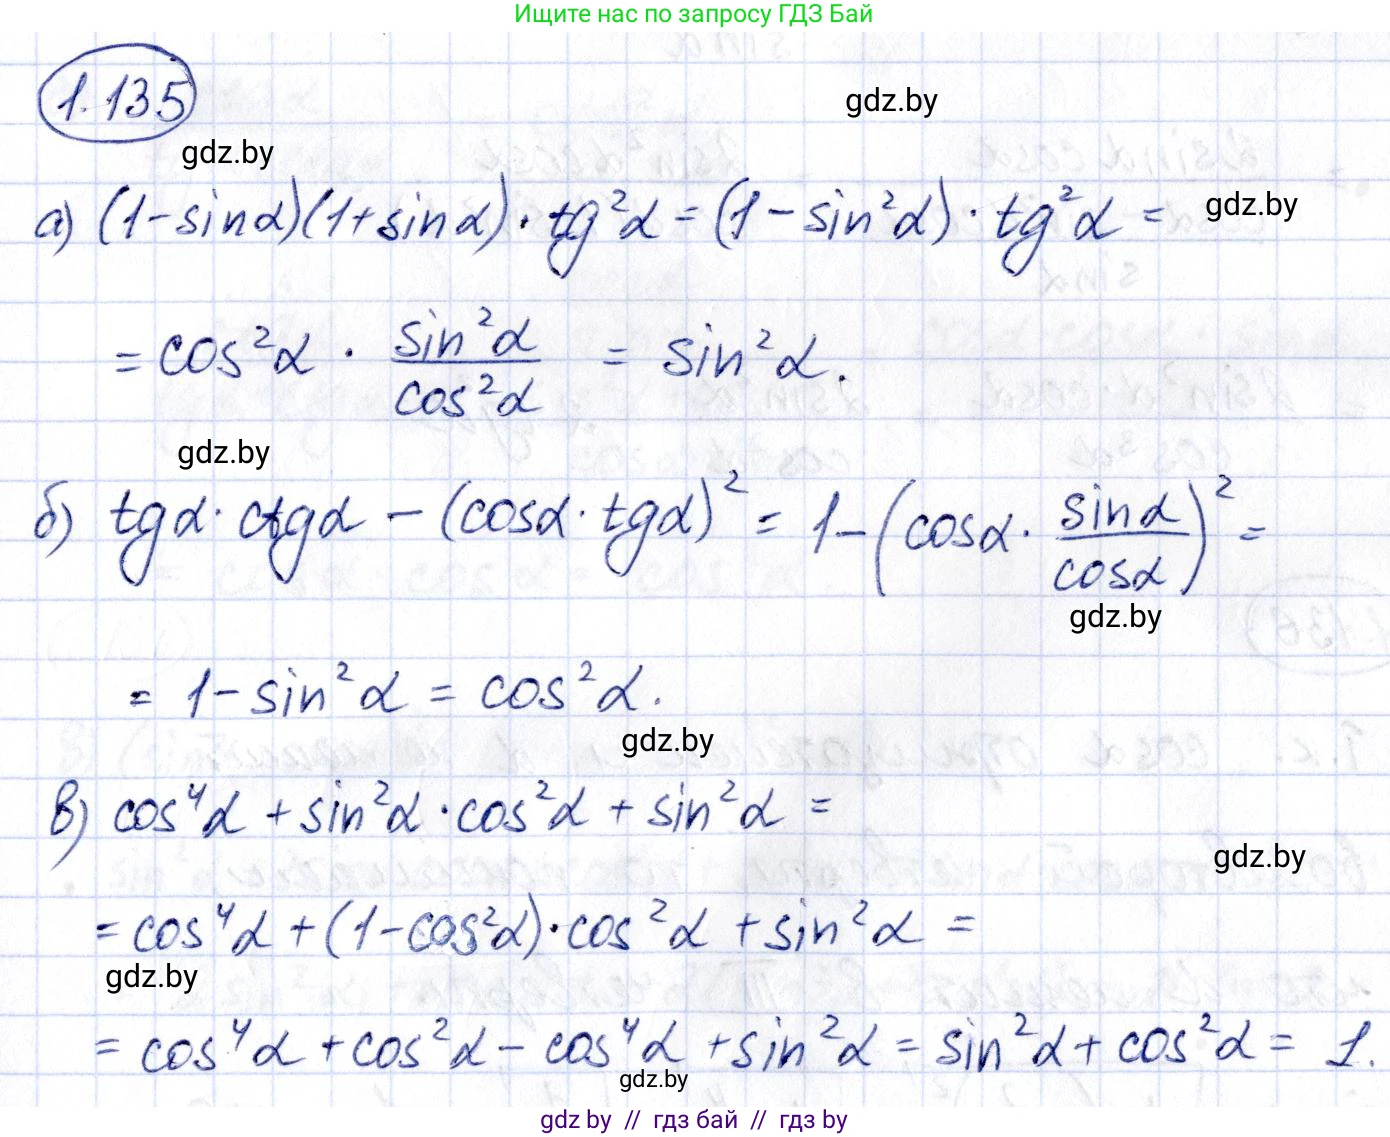 Ищите нас по запросу ГДЗ Бай
1.135
gdz.by
gdz.by
а) (1-sinα)(1+sinα)·tg²α = (1-sin²α)·tg²α =
gdz.by
= cos²α · sin²α/cos²α = sin²α.
gdz.by
б) tgα·ctgα - (cosα·tgα)² = 1-(cosα·sinα/cosα)² =
gdz.by
= 1-sin²α = cos²α.
gdz.by
в) cos⁴α + sin²α·cos²α + sin²α =
gdz.by
= cos⁴α + (1-cos²α)·cos²α + sin²α =
gdz.by
= cos⁴α + cos²α - cos⁴α + sin²α = sin²α + cos²α = 1.
gdz.by
gdz by // гдз бай // гдз by